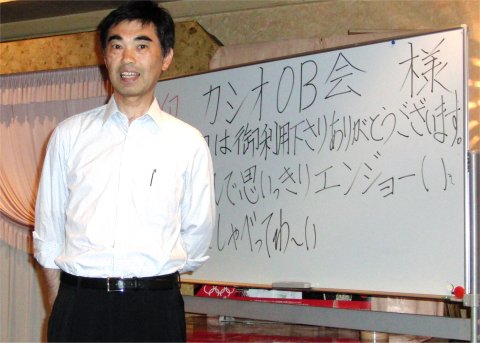 カシオOB会 様
は御利用下さりありがとうございます。
で思いっきりエンジョーイ
しゃべってわ〜い